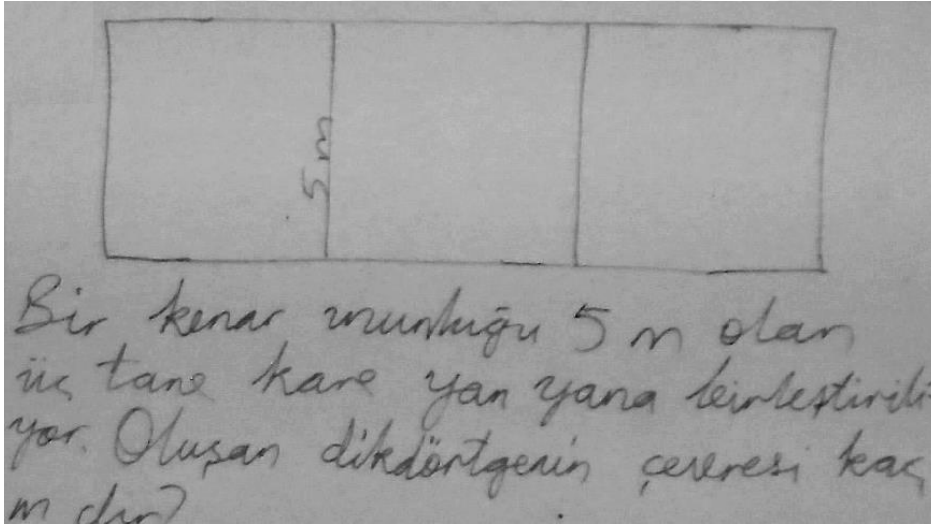 5 m
Bir kenar uzunluğu 5 m olan
üç tane kare yan yana birleştirili-
yor. Oluşan dikdörtgenin çevresi kaç
m dir?